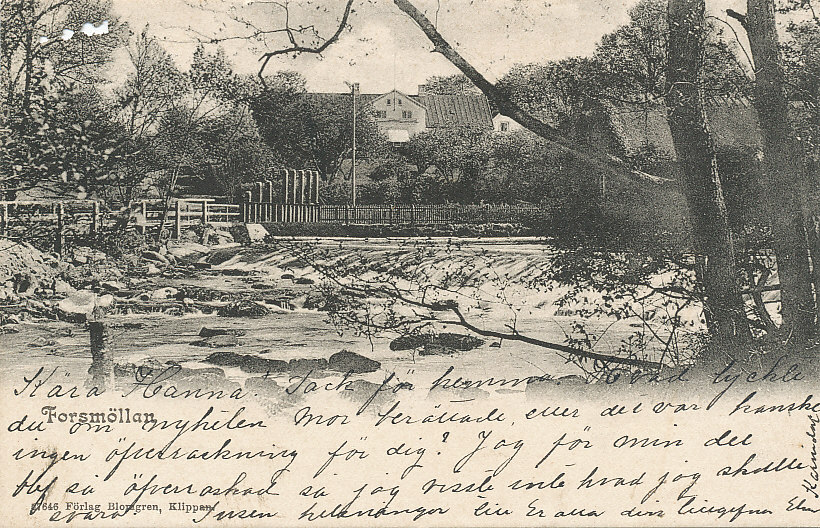 Kära Hanna. Tack för hemma. Hvad tyckte
Forsmöllan
du om nyheten Mor berättade, eller det var kanske
ingen öfverraskning för dig? Jag för min del
blef så öfverraskad så jag visste inte hvad jag skulle
27646 Förlag Blomgren, Klippan.
svara. Tusen helsningar till Er alla din tillgifna Ellen